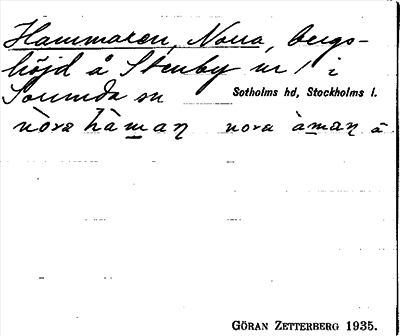 Hammaren, Norra, bergs-
höjd å Stenby nr 1 i
Sorunda sn Sotholms hd, Stockholms l.
nòra hàman nora àman ä
GÖRAN ZETTERBERG 1935.